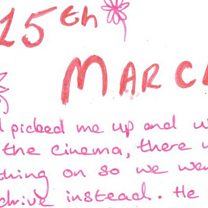 15th
MARC
picked me up and w
the cinema, there w
thing on so we wen
drive instead. He